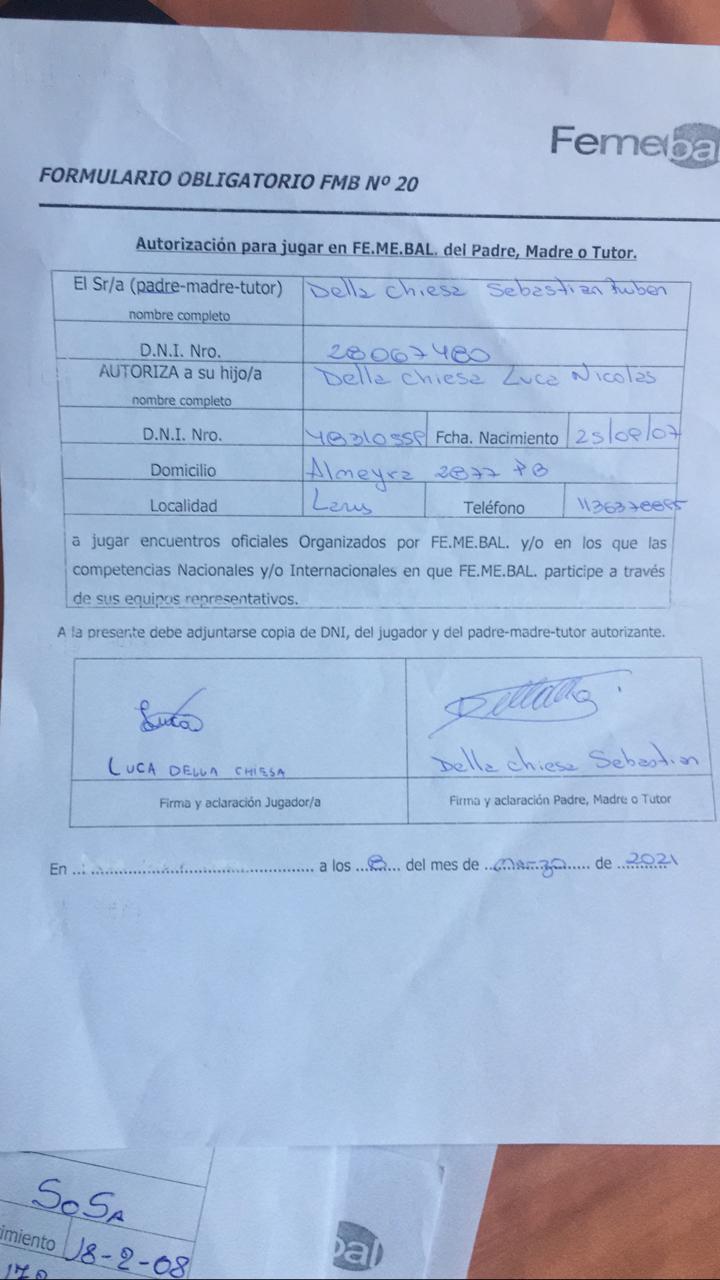 Femebal
FORMULARIO OBLIGATORIO FMB Nº 20
Autorización para jugar en FE.ME.BAL. del Padre, Madre o Tutor.
El Sr/a (padre-madre-tutor) Della Chiesa Sebastian Ruben
nombre completo
D.N.I. Nro. 28067480
AUTORIZA a su hijo/a Della Chiesa Luca Nicolas
nombre completo
D.N.I. Nro. Fcha. Nacimiento
Domicilio Almeyra 2877 PB
Localidad Lanus Teléfono
a jugar encuentros oficiales Organizados por FE.ME.BAL. y/o en los que las
competencias Nacionales y/o Internacionales en que FE.ME.BAL. participe a través
de sus equipos representativos.
A la presente debe adjuntarse copia de DNI, del jugador y del padre-madre-tutor autorizante.
Luca
LUCA DELLA CHIESA Della Chiesa Sebastian
Firma y aclaración Jugador/a Firma y aclaración Padre, Madre o Tutor
En ............................................. a los ...8... del mes de ..marzo..... de ..2021
SOSA
imiento 18-2-08
bal